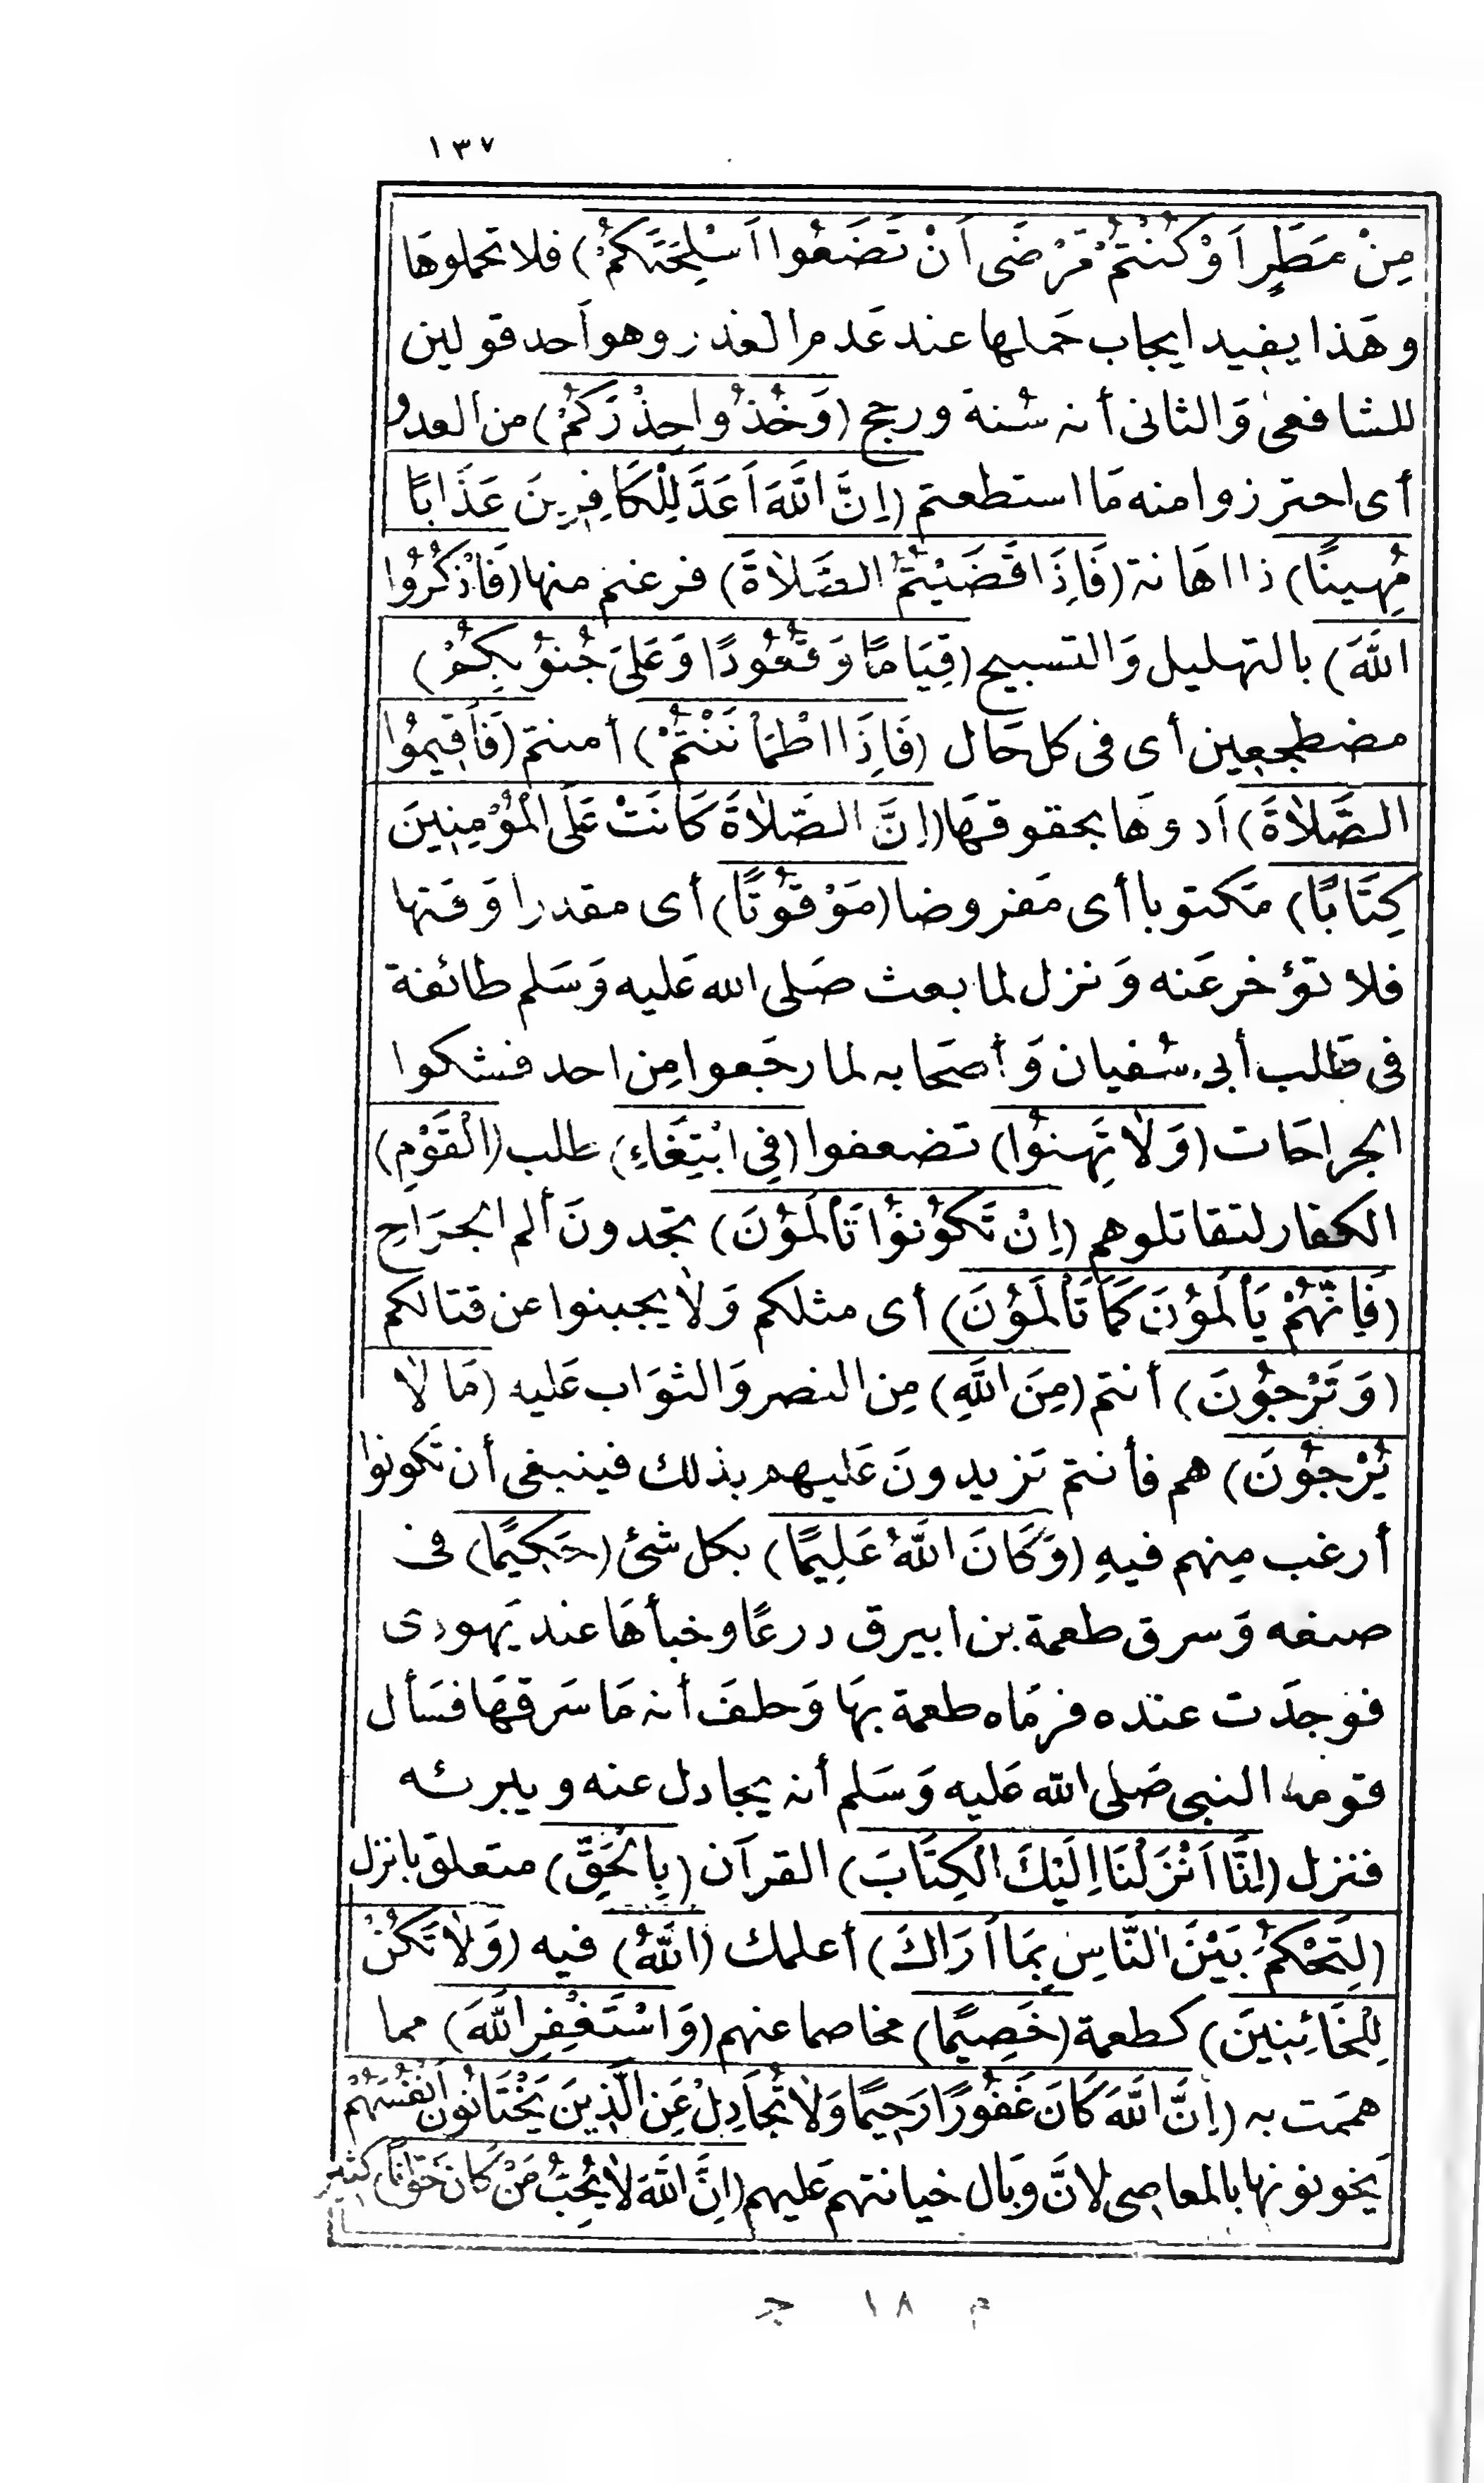 ١٣٧
مِنْ مَطَرٍ اَوْ كُنْتُمْ مَرْضَى اَنْ تَضَعُوا اَسْلِحَتَكُمْ) فلا تحملوهَا
وهَذا يفيد ايجاب حَملها عند عَدم العذر وهو أحد قولين
للشافعى وَالثانى أنه سُنة ورجح (وَخُذُوا حِذْرَكُمْ) من العدو
أى احترزوا منه مَا استطعتم (اِنَّ اللَّهَ اَعَدَّ لِلْكَافِرِينَ عَذَابًا
مُهِينًا) ذا اهَانة (فَاِذَا قَضَيْتُمُ الصَّلَاةَ) فرغتم منها (فَاذْكُرُوا
اللَّهَ) بالتهليل وَالتسبيح (قِيَامًا وَقُعُودًا وَعَلَى جُنُوبِكُمْ)
مضطجعين أى فى كل حَال (فَاِذَا اطْمَأْنَنْتُمْ) أمنتم (فَأَقِيمُوا
الصَّلَاةَ) اَدوهَا بحقوقهَا (اِنَّ الصَّلَاةَ كَانَتْ عَلَى الْمُؤْمِنِينَ
كِتَابًا) مَكتوبا أى مَفروضا (مَوْقُوتًا) أى مقدرا وَقتها
فلا تؤخر عَنه وَنزل لما بعث صَلى الله عَليه وَسَلم طائفة
فى طَلب أبى سُفيان وَأصحَابه لما رجَعوا مِن احد فشكوا
الجراحَات (وَلَا تَهِنُوا) تضعفوا (فِى ابْتِغَاءِ) طلب (الْقَوْمِ)
الكفار لتقاتلوهم (اِنْ تَكُونُوا تَأْلَمُونَ) تجدونَ ألم الجرَاحِ
(فَاِنَّهُمْ يَأْلَمُونَ كَمَا تَأْلَمُونَ) أى مثلكم وَلَا يجبنوا عن قتالكم
(وَتَرْجُونَ) أنتم (مِنَ اللَّهِ) مِن النصر وَالثوَاب عَليه (مَا لَا
يَرْجُونَ) هم فأنتم تَزيدونَ عَليهم بذلك فينبغى أن تَكونوا
أرغب مِنهم فيهِ (وَكَانَ اللَّهُ عَلِيمًا) بكل شئ (حَكِيمًا) فى
صنعه وَسرق طعمة بن ابيرق درعًا وخبأهَا عند يَهودى
فوجدَت عنده فرمَاه طعمة بهَا وَحلفَ أنه مَا سَرقهَا فسَأل
قومه النبى صَلى الله عَليه وَسَلم أنه يجادل عنه ويبرئه
فنزل (اِنَّا اَنْزَلْنَا اِلَيْكَ الْكِتَابَ) القرآن (بِالْحَقِّ) متعلق بانزل
(لِتَحْكُمَ بَيْنَ النَّاسِ بِمَا أَرَاكَ) أعلمك (اللَّهُ) فيه (وَلَا تَكُنْ
لِلْخَائِنِينَ) كطعمة (خَصِيمًا) مخاصما عنهم (وَاسْتَغْفِرِ اللَّهَ) مما
هممَت به (اِنَّ اللَّهَ كَانَ غَفُورًا رَحِيمًا وَلَا تُجَادِلْ عَنِ الَّذِينَ يَخْتَانُونَ أَنْفُسَهُمْ
يَخونونها بالمعاصى لانَّ وَبَال خيانتهم عَليهم (اِنَّ اللَّهَ لَا يُحِبُّ مَنْ كَانَ خَوَّانًا) كثير
م ١٨ جـ